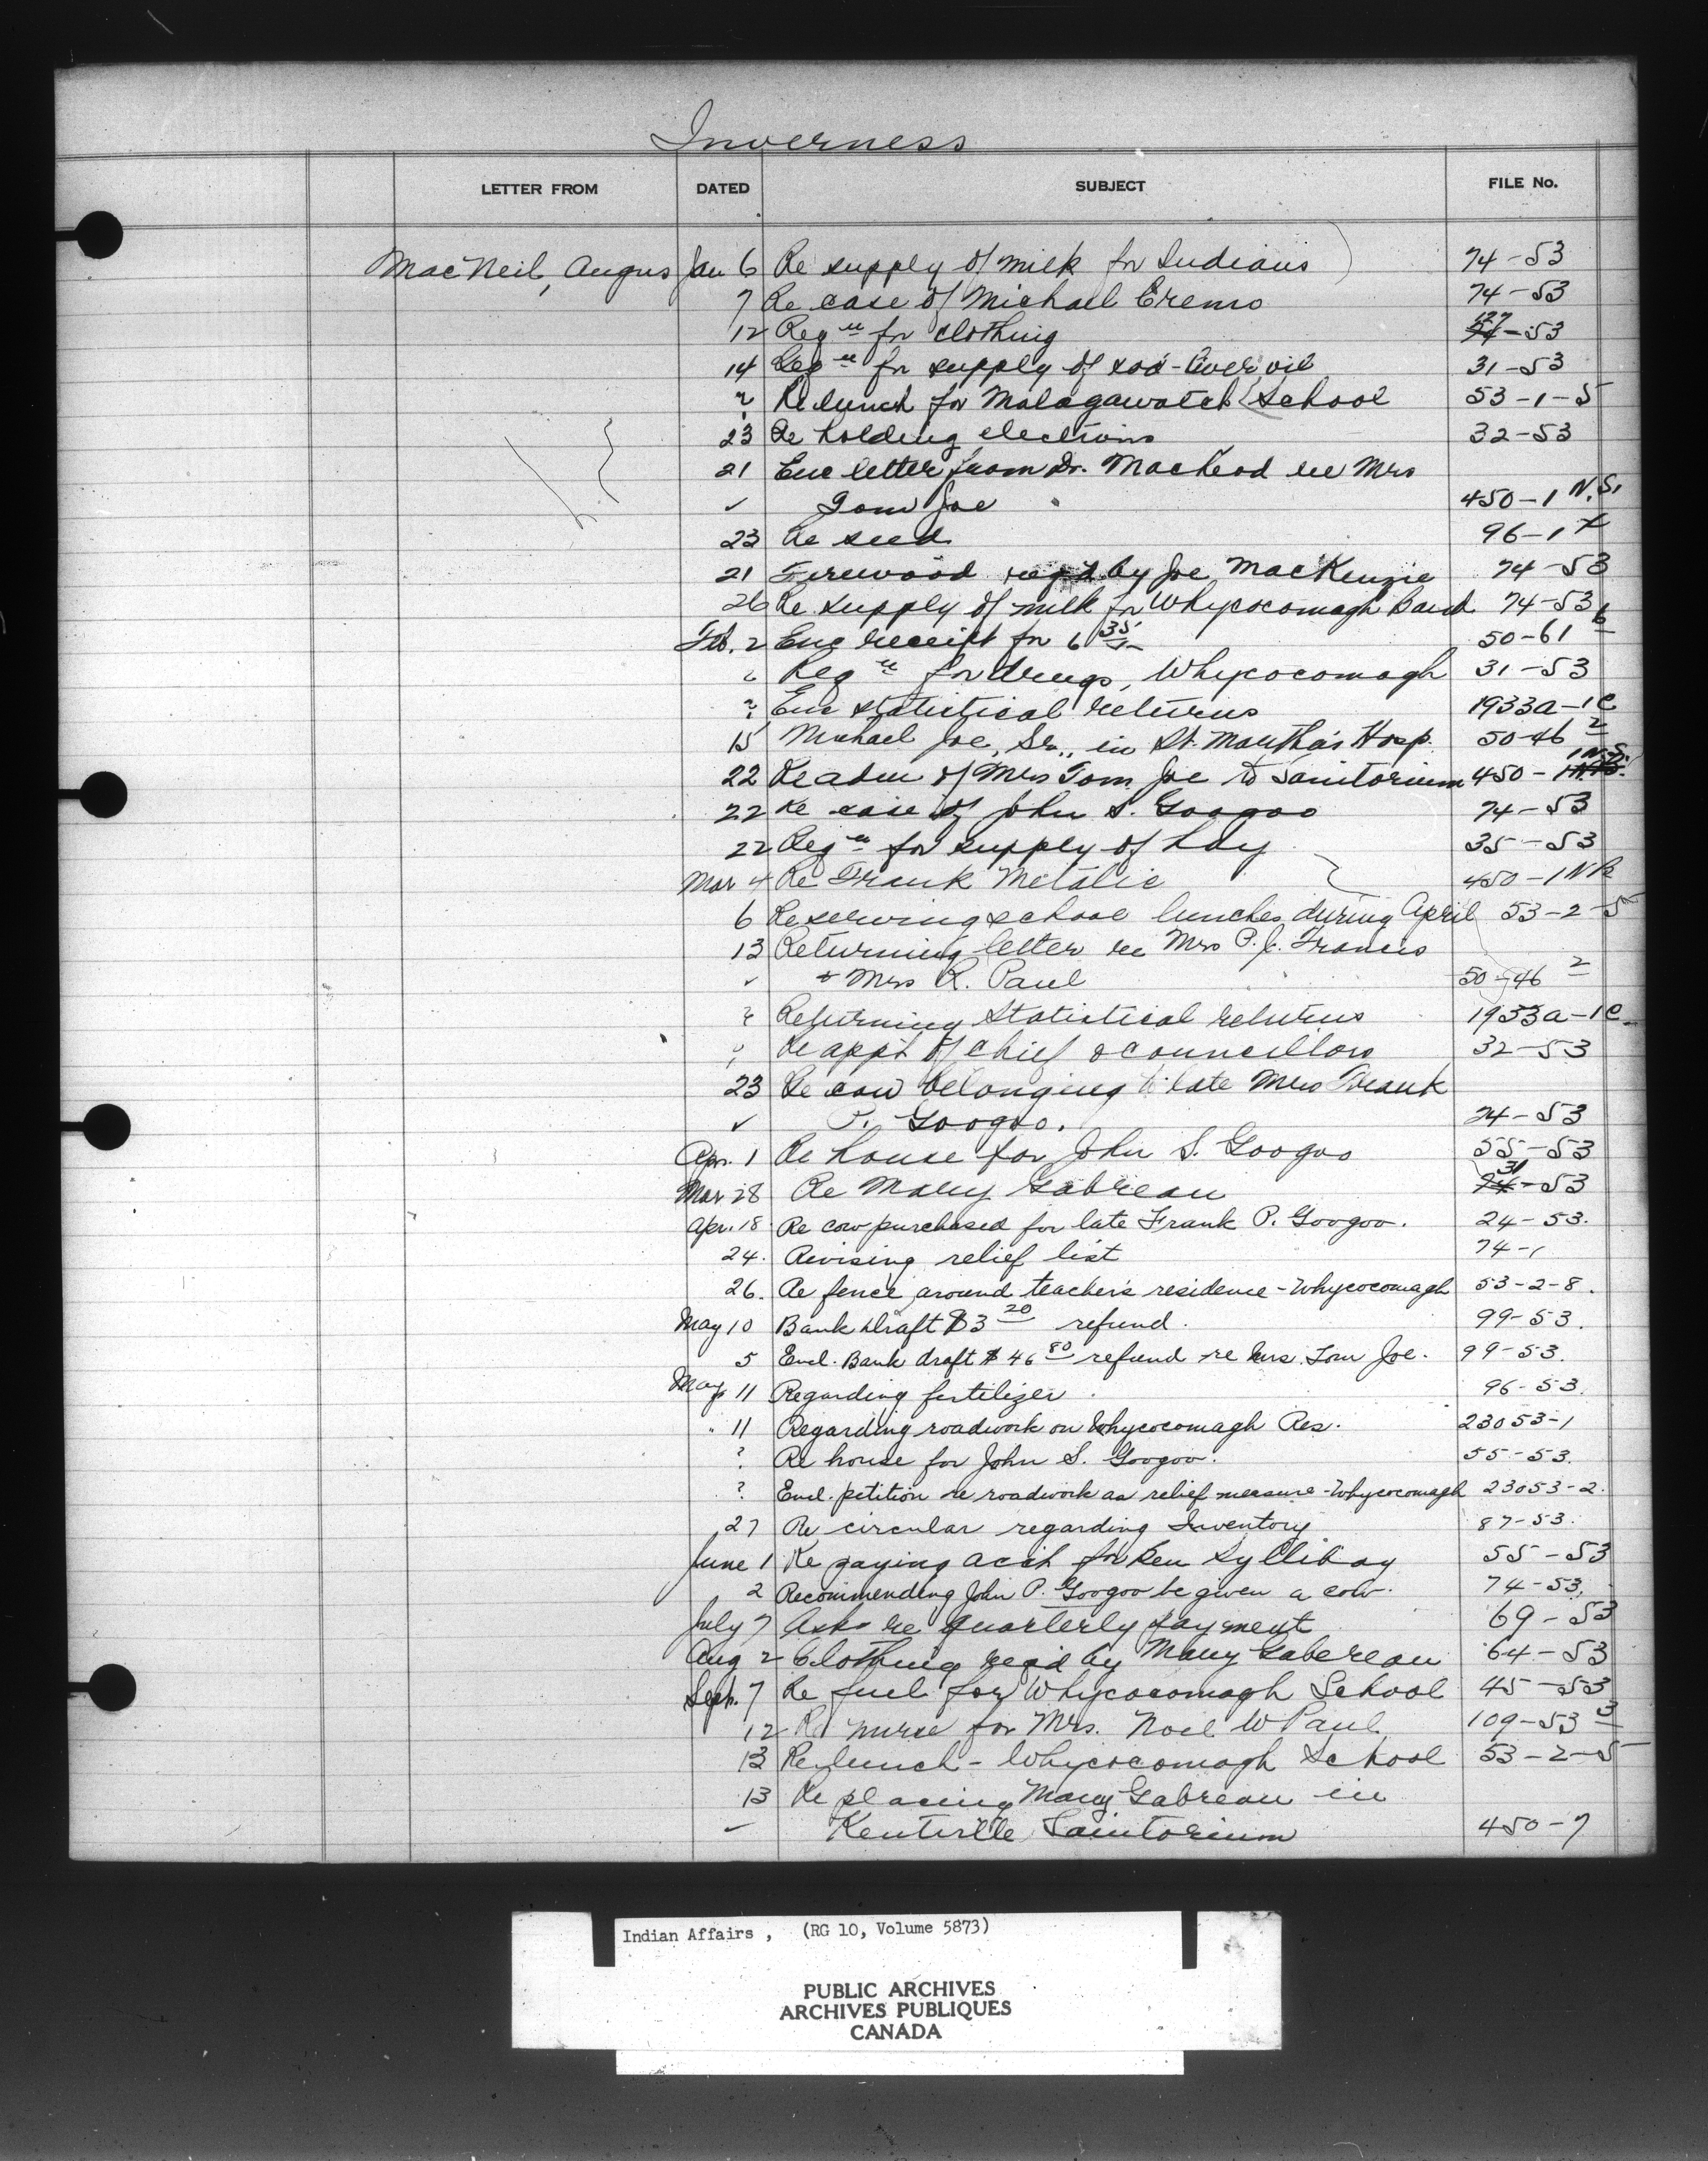 Inverness
LETTER FROM DATED SUBJECT FILE No.
MacNeil, Angus Jan 6 Re supply of milk for Indians 74-53
7 Re case of Michael Cremo 74-53
12 Reqn for clothing 127 54-53
14 Reqn for supply of cod-liver oil 31-53
? Re lunch for Malagawatch School 53-1-5
23 Re holding elections 32-53
21 Enc letter from Dr. MacLeod re Mrs
✓ Tom Joe 450-1 N.S.
23 Re seed 96-1
21 Firewood req'd by Joe MacKenzie 74-53
26 Re supply of milk for Whycocomagh Band 74-53
Feb. 2 Enc receipt for 6 35 50-61 6
" Reqn for drugs, Whycocomagh 31-53
? Enc statistical returns 1933a-1c
15 Michael Joe, Sr., in St. Martha's Hosp. 50-46 2
22 Re adm of Mrs Tom Joe to Sanitorium 450-1 N.S.
22 Re case of John S. Googoo 74-53
22 Reqn for supply of hay 35-53
Mar 4 Re Frank Metalic 450-1 NB
6 Re serving school lunches during April 53-2-5
13 Returning letter re Mrs P. J. Francis
✓ + Mrs R. Paul 50-46 2
? Returning Statistical returns 1933a-1c
? Re app't of chief & councillors 32-53
23 Re cow belonging to late Mrs Frank
✓ P. Googoo. 24-53
Apr. 1 Re house for John S. Googoo 55-53
Mar 28 Re Mary Gabreau 31 74-53
Apr. 18 Re cow purchased for late Frank P. Googoo. 24-53.
24. Revising relief list 74-1
26. Re fence around teacher's residence - Whycocomagh 53-2-8.
May 10 Bank Draft $3 20 refund. 99-53.
5 Encl. Bank draft $46 80 refund re Mrs. Tom Joe. 99-53.
May 11 Regarding fertilizer. 96-53.
" 11 Regarding roadwork on Whycocomagh Res. 23053-1
? Re house for John S. Googoo. 55-53.
? Encl. petition re roadwork as relief measure - Whycocomagh 23053-2.
27 Re circular regarding Inventory 87-53.
June 1 Re paying acct for Ben Sylliboy 55-53
2 Recommending John P. Googoo be given a cow. 74-53.
July 7 Asks re quarterly payment 69-53
Aug 2 Clothing req'd by Mary Gabereau 64-53
Sept. 7 Re fuel for Whycocomagh School 45-53
12 Re nurse for Mrs. Noel W Paul 109-53 3
13 Re lunch - Whycocomagh School 53-2-5
13 Re placing Mary Gabreau in
✓ Kentville Sanitorium 450-7
Indian Affairs, (RG 10, Volume 5873)
PUBLIC ARCHIVES
ARCHIVES PUBLIQUES
CANADA